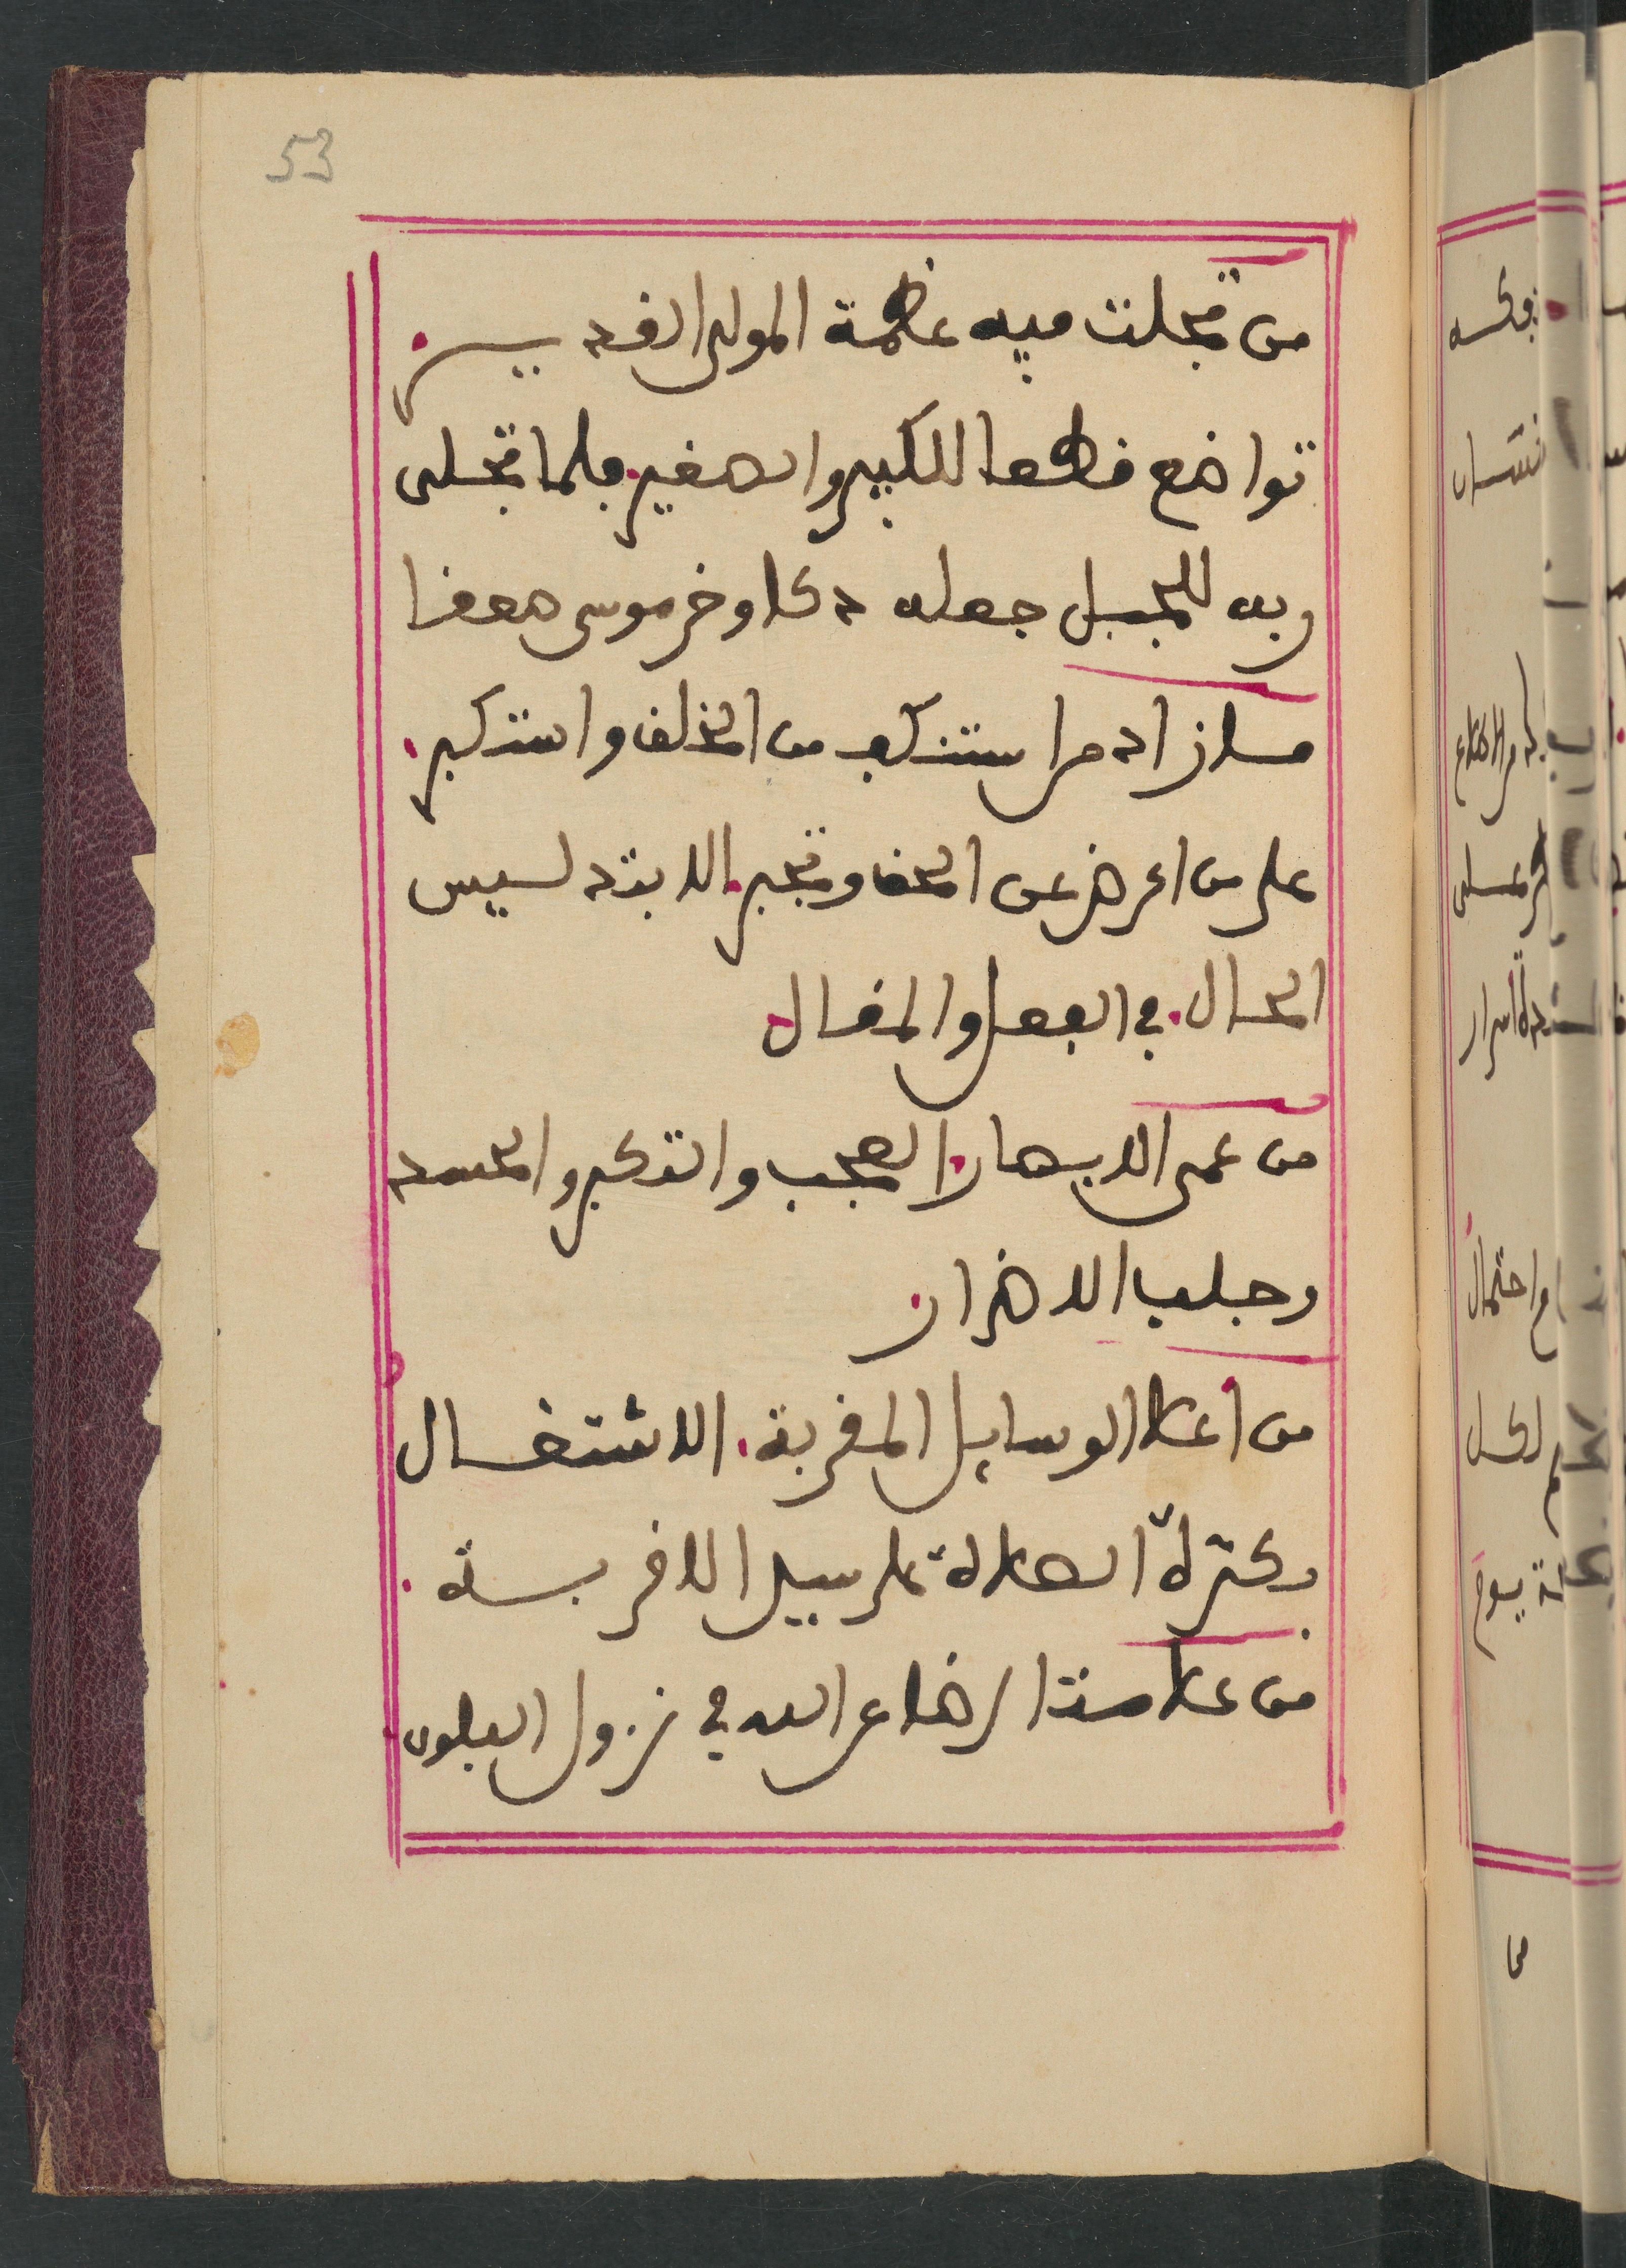 53
من تجلت فيه عظمة المولى القدير.
تواضع قطعا للكبير والصغير. فلما تجلى
ربه للجبل جعله دكا وخر موسى صعقا
ما زاد من استنكف من الخلق واستكبر.
على من اعرض عن الحق وتجبر. الا بتدليس
الحال. في الفعل والمقال.
من عمى الابصار. العجب والتكبر والحسد
وجلب الاضرار.
من اعلا الوسايل المقربة. الاشتغال
بكثرة الصلاة على سبيل الاقربية.
من علامة الرضا عن الله في نزول البلوى